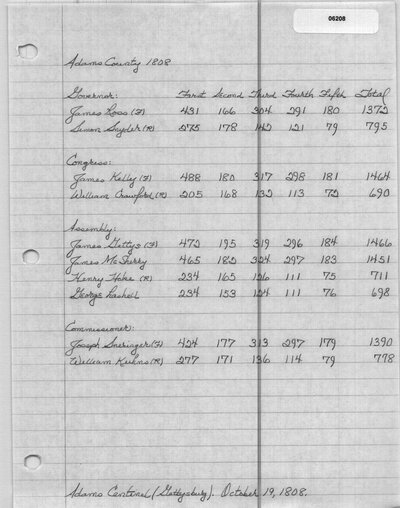 06208
Adams County 1808
Governor: First Second Third Fourth Fifth Total
James Ross (F) 431 166 304 291 180 1372
Simon Snyder (R) 275 178 142 121 79 795
Congress:
James Kelly (F) 488 180 317 298 181 1464
William Crawford (R) 205 168 132 113 72 690
Assembly:
James Gettys (F) 472 195 319 296 184 1466
James McSherry 465 182 324 297 183 1451
Henry Hoke (R) 234 165 126 111 75 711
George Lashell 234 153 124 111 76 698
Commissioner:
Joseph Sneringer (F) 424 177 313 297 179 1390
William Kuhns (R) 277 171 136 114 79 778
Adams Centinel (Gettysburg). October 19, 1808.